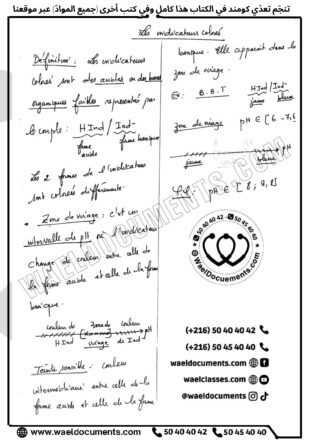 تنجّم تعدّي كومند في الكتاب هذا كامل وفي كتب أخرى (جميع الموادّ) عبر موقعنا
Les indicateurs colorés
Définition : les indicateurs
colorés sont des acides ou des bases
organiques faibles représentés par
le couple : HInd / Ind-
forme acide
forme basique
Les 2 formes de l'indicateur
sont colorées différemment.
• Zone de virage : c'est un
intervalle de pH où l'indicateur
change de couleur entre celle de
la forme acide et celle de la forme
basique.
couleur de zone de couleur pH
HInd virage de Ind-
Teinte sensible : couleur
intermédiaire entre celle de la
forme acide et celle de la forme
basique. Elle apparait dans la
zone de virage.
Ex: B.B.T HInd / Ind-
jaune bleue
zone de virage pH ∈ [6 - 7,6
jaune bleue pH
pH ∈ [8;
WAELDOCUMENTS.COM
50 40 40 42 - 50 45 40 40
© WaelDocuements.com
(+216) 50 40 40 42
(+216) 50 45 40 40
waeldocuments.com
waelclasses.com
@waeldocuments
www.waeldocuments.com 50 40 40 42 50 45 40 40